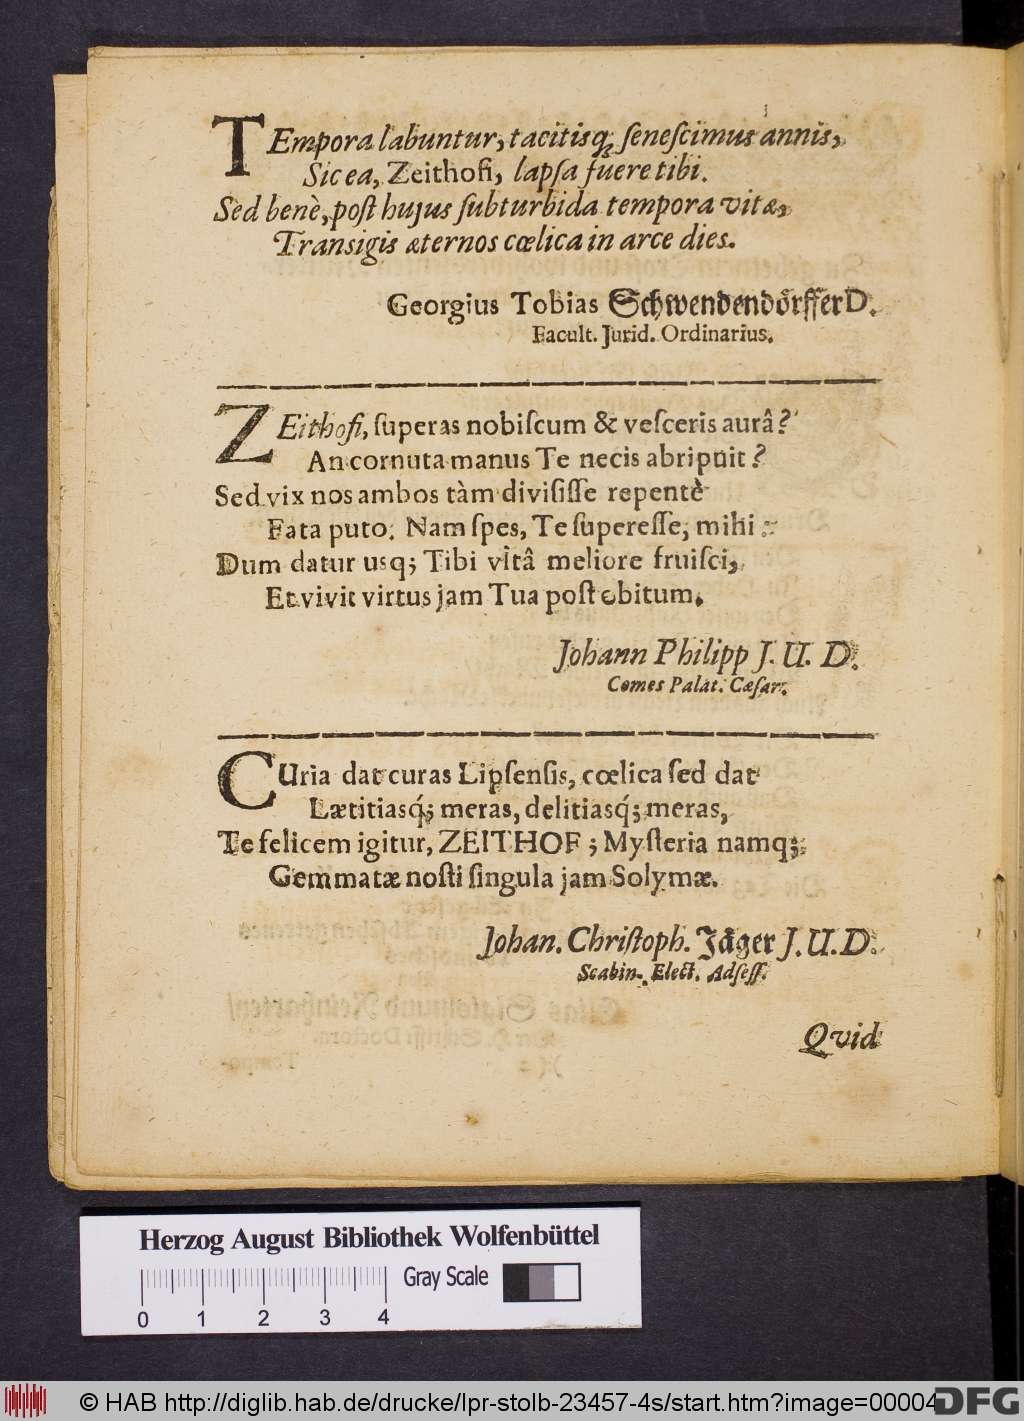 TEmpora labuntur, tacitisq; ſeneſcimus annis,
Sic ea, Zeithofi, lapſa fuere tibi.
Sed benè, poſt hujus ſubturbida tempora vitæ,
Transigis æternos cœlica in arce dies.
Georgius Tobias Schwendendörffer D.
Facult. Jurid. Ordinarius.
ZEithofi, ſuperas nobiſcum & veſceris aurâ?
An cornuta manus Te necis abripuit?
Sed vix nos ambos tàm diviſiſſe repentè
Fata puto. Nam ſpes, Te ſupereſſe, mihi:
Dum datur usq; Tibi vitâ meliore fruiſci,
Et vivit virtus jam Tua poſt obitum.
Johann Philipp J. U. D.
Comes Palat. Cæſar.
CUria dat curas Lipſenſis, cœlica ſed dat
Lætitiasq́; meras, delitiasq́; meras,
Te felicem igitur, ZEITHOF; Myſteria namq;
Gemmatæ noſti ſingula jam Solymæ.
Johan. Chriſtoph. Jäger J. U. D.
Scabin. Elect. Adſeſſ.
Qvid
Herzog August Bibliothek Wolfenbüttel
Gray Scale
0 1 2 3 4
© HAB http://diglib.hab.de/drucke/lpr-stolb-23457-4s/start.htm?image=00004
DFG